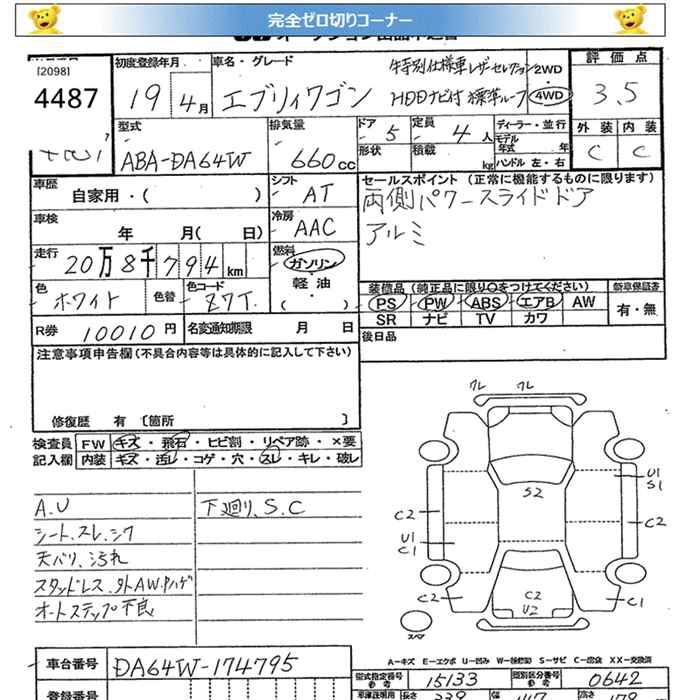 完全ゼロ切りコーナー
[2098]
4487
初度登録年月
19年4月
車名・グレード
エブリィワゴン
特別仕様車 レザーセレクション
HDDナビ付 標準ルーフ
2WD
・
4WD
評価点
3.5
外装 内装
C C
型式
ABA-DA64W
排気量
660cc
ドア 5
形状
定員 4人
積載 kg
ディーラー・並行
モデル年式 年
ハンドル 左・右
車歴
自家用・( )
シフト
AT
セールスポイント (正常に機能するものに限ります)
両側パワースライドドア
アルミ
車検
年 月( 日)
冷房
AAC
走行
20万8千794km
燃料
ガソリン
・
軽油
( )
色
ホワイト
色替
色コード
Z7T
装備品 (純正品に限り○をつけてください)
PS PW ABS エアB AW
SR ナビ TV カワ
新車保証書
有・無
R券 10010円
名変通知期限 月 日
後日品
注意事項申告欄(不具合内容等は具体的に記入して下さい)
修復歴 有 〔箇所 〕
検査員
記入欄
FW キズ・飛石・ヒビ割・リペア跡・×要
内装 キズ・汚レ・コゲ・穴・スレ・キレ・破レ
A.U
シート.スレ.シワ
天バリ、汚れ
スタッドレス.外AW.Pハゲ
オートステップ不良
下廻り、S.C
クレ クレ
S2
U1
S1
C2
C2
U1
C1
C2
C2
U2
C1
スペア
A-キズ E-エクボ U-凹み W-補修跡 S-サビ C-腐食 XX-交換済
車台番号
DA64W-174795
型式指定番号
参考
15133
類別区分番号
参考
0642
登録番号